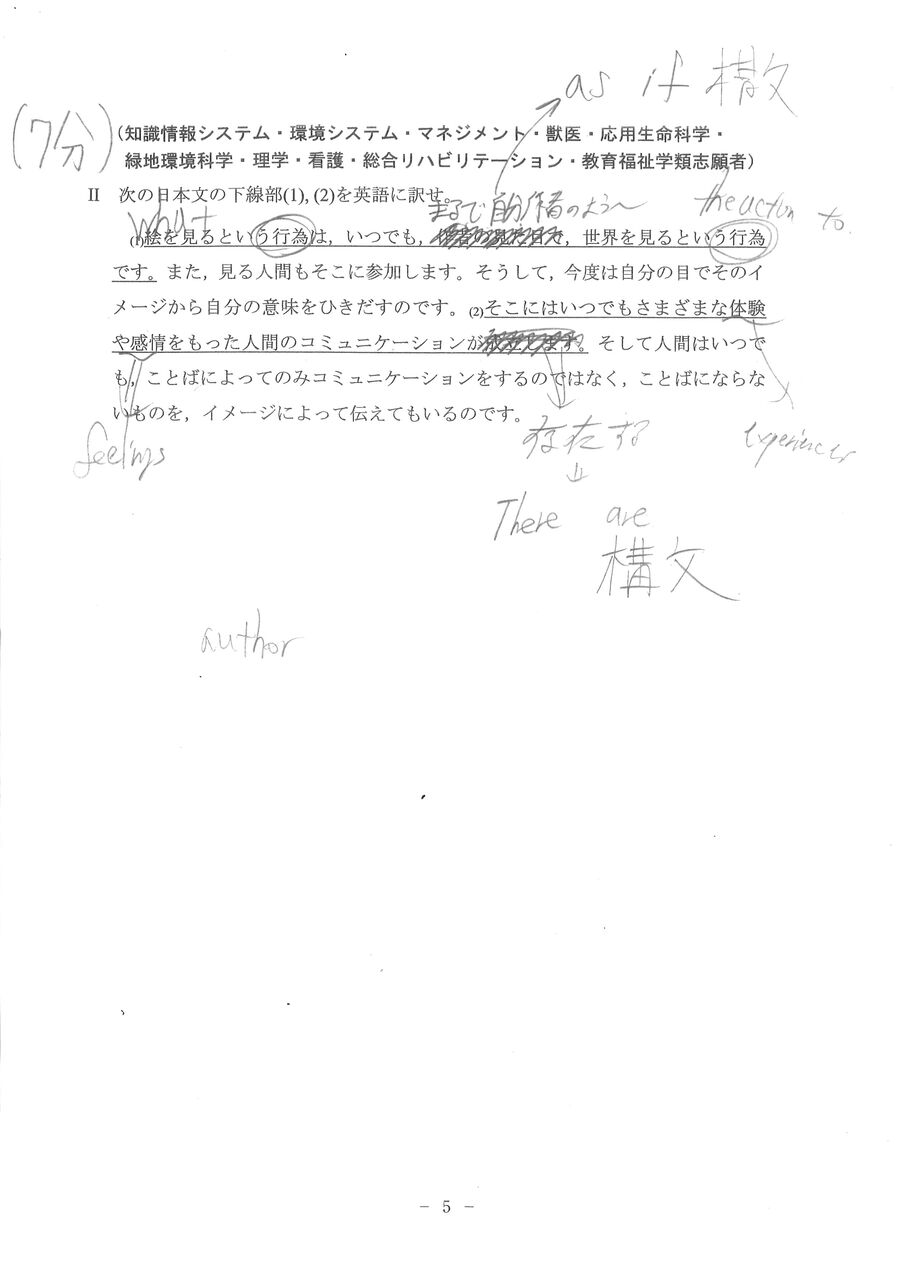 as if 構文
(7分)
(知識情報システム・環境システム・マネジメント・獣医・応用生命科学・
緑地環境科学・理学・看護・総合リハビリテーション・教育福祉学類志願者)
II 次の日本文の下線部(1), (2)を英語に訳せ。
まるで自分作者のように
the action to
what
(1)絵を見るという行為は，いつでも，，世界を見るという行為
です。また，見る人間もそこに参加します。そうして，今度は自分の目でそのイ
メージから自分の意味をひきだすのです。(2)そこにはいつでもさまざまな体験
や感情をもった人間のコミュニケーションが。そして人間はいつで
も，ことばによってのみコミュニケーションをするのではなく，ことばにならな
いものを，イメージによって伝えてもいるのです。
feelings
存在する
experiences
There are
構文
author
- 5 -